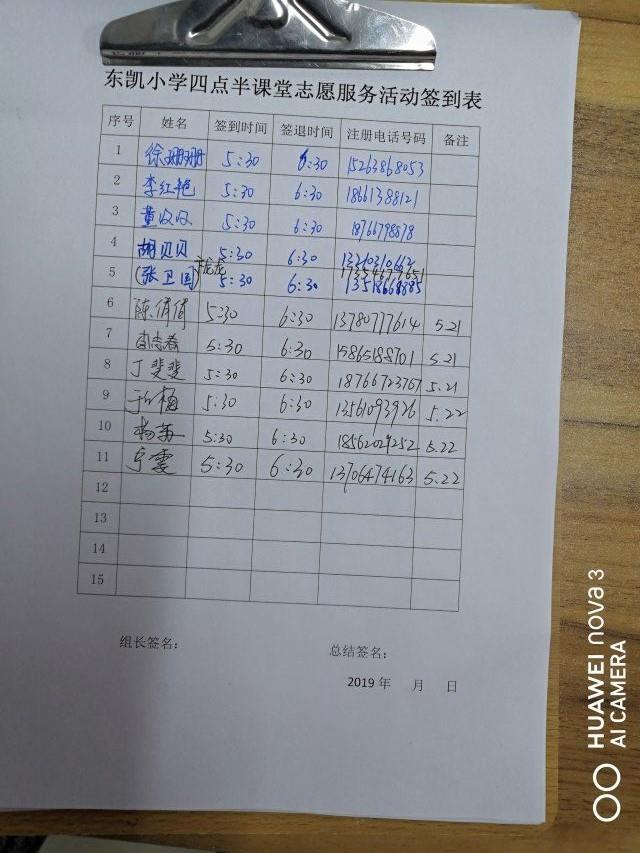 东凯小学四点半课堂志愿服务活动签到表
序号 姓名 签到时间 签退时间 注册电话号码 备注
1 徐珊珊 5:30 6:30 15263868053
2 李红艳 5:30 6:30 18661388121
3 董 5:30 6:30 18766798578
4 胡贝贝 5:30 6:30
5 (张卫国) 5:30 6:30
6 陈倩倩 5:30 6:30 13780777614 5.21
7 5:30 6:30 15865188701 5.21
8 丁斐斐 5:30 6:30 18766723767 5.21
9 5:30 6:30 13561093926 5.22
10 杨 5:30 6:30 18562029252 5.22
11 宁雯 5:30 6:30 13706474163 5.22
12
13
14
15
组长签名： 总结签名：
2019 年 月 日
HUAWEI nova 3
AI CAMERA